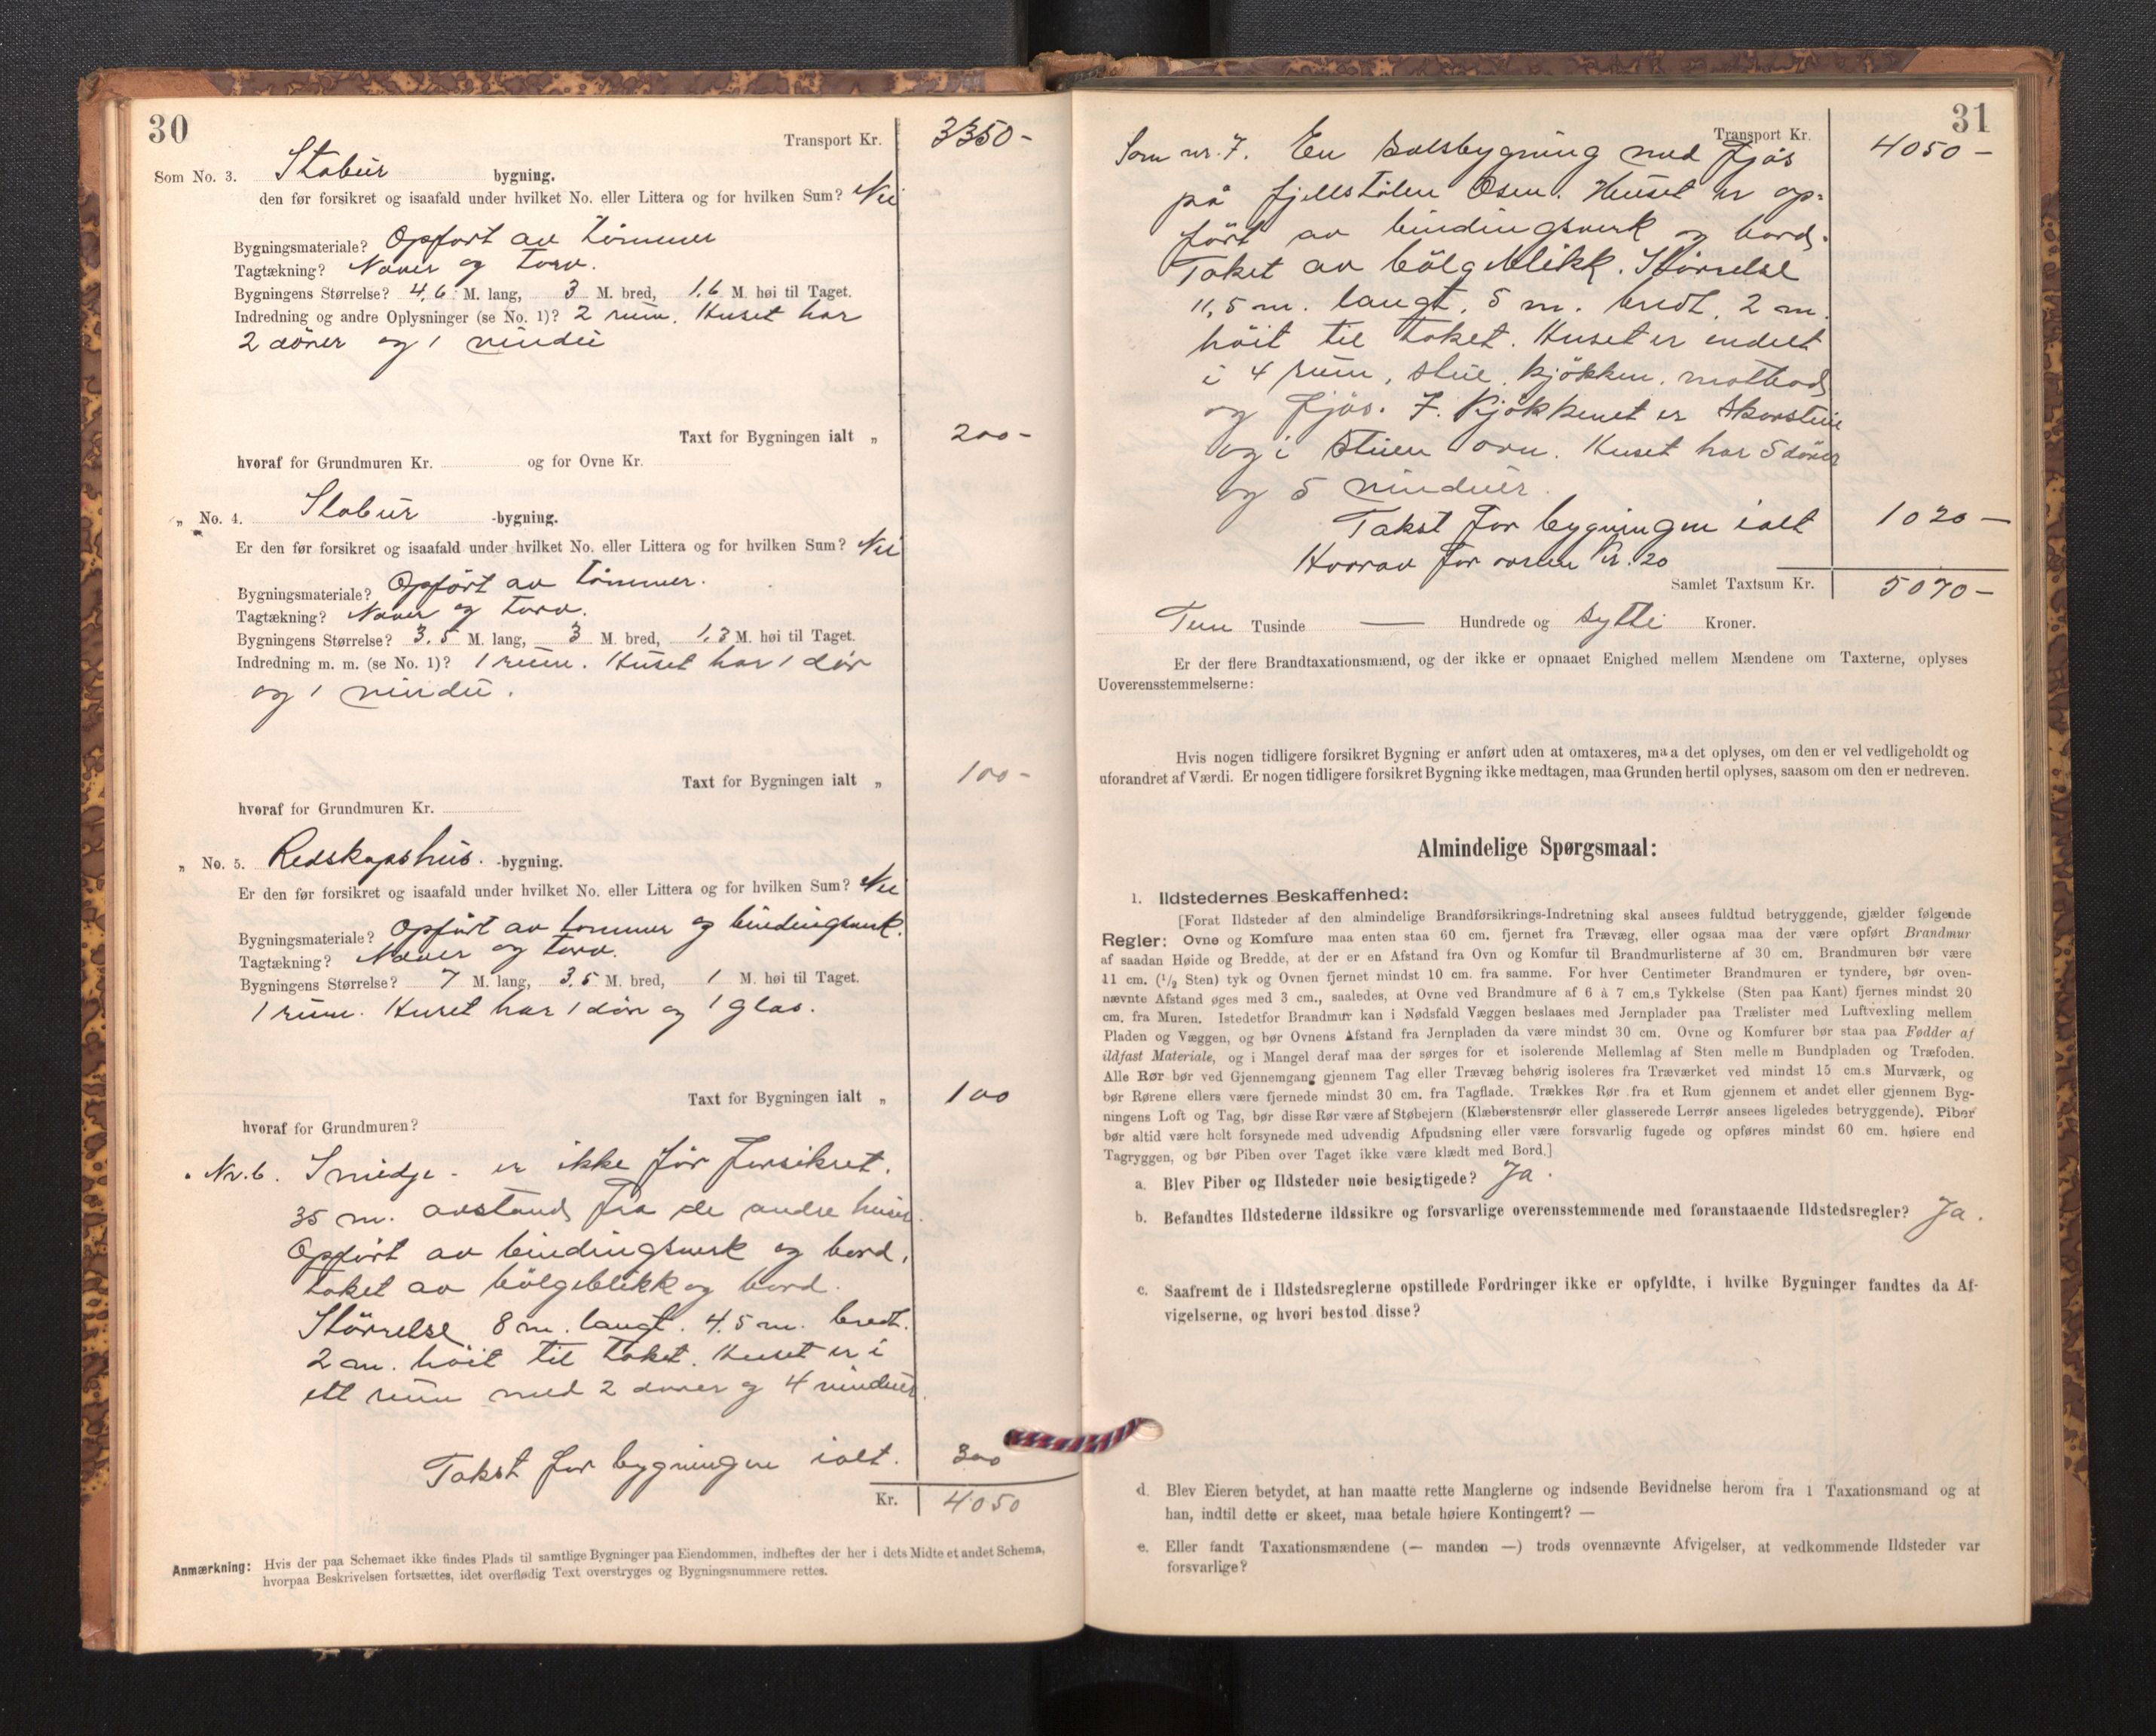 30
Transport Kr. 3350-
Som No. 3. Stabur bygning.
den før forsikret og isaafald under hvilket No. eller Littera og for hvilken Sum? Nei
Bygningsmateriale? Opført av tømmer
Tagtækning? Never og torv.
Bygningens Størrelse? 4,6 M. lang, 3 M. bred, 1,6 M. høi til Taget.
Indredning og andre Oplysninger (se No. 1)? 2 rum. Huset har
2 dörer og 1 vindu
Taxt for Bygningen ialt „ 200-
hvoraf for Grundmuren Kr. og for Ovne Kr.
„ No. 4. Stabur -bygning.
Er den før forsikret og isaafald under hvilket No. eller Littera og for hvilken Sum? Nei
Bygningsmateriale? Opfört av tömmer.
Tagtækning? Never og torv.
Bygningens Størrelse? 3,5 M. lang, 3 M. bred, 1,3 M. høi til Taget.
Indredning m. m. (se No. 1)? 1 rum. Huset har 1 dör
og 1 vindu.
Taxt for Bygningen ialt „ 100-
hvoraf for Grundmuren Kr.
„ No. 5. Redskapshus. -bygning.
Er den før forsikret og isaafald under hvilket No. eller Littera og for hvilken Sum? Nei
Bygningsmateriale? Opfört av tømmer og bindingsverk.
Tagtækning? Never og torv.
Bygningens Størrelse? 7 M. lang, 3,5 M. bred, 1 M. høi til Taget.
1 rum. Huset har 1 dör og 1 glas.
Taxt for Bygningen ialt „ 100
hvoraf for Grundmuren?
„ Nr. 6. Smidje - er ikke för forsikret.
35 m. avstand fra de andre huser.
Opfört av bindingsverk og bord,
taket av bölgeblikk og bord.
Störrelse 8 m. langt. 4.5 m. bredt.
2 m. höit til taket. Huset er i
ett rum med 2 dører og 4 vinduer.
Takst for bygningen ialt. 300
Kr. 4050
Anmærkning: Hvis der paa Schemaet ikke findes Plads til samtlige Bygninger paa Eiendommen, indheftes der her i dets Midte et andet Schema,
hvorpaa Beskrivelsen fortsættes, idet overflødig Text overstryges og Bygningsnummere rettes.
31
Transport Kr. 4050-
Som nr. 7. En selsbygning med fjös
på fjellstölen Osen. Huset er op-
fört av bindingsverk og bord.
Taket av bölgeblikk. Störrelse
11,5 m. langt, 5 m. bredt, 2 m.
höit til taket. Huset er inndelt
i 4 rum, stue, kjökken, matbod
og fjös. I kjökkenet er skorstein
og i stuen ovn. Huset har 5 dörer
og 5 vinduer.
Takst for bygningen ialt 1020-
Hvorav for ovnen kr. 20
Samlet Taxtsum Kr. 5070-
Fem Tusinde — Hundrede og sytti Kroner.
Er der flere Brandtaxationsmænd, og der ikke er opnaaet Enighed mellem Mændene om Taxterne, oplyses
Uoverensstemmelserne:
Hvis nogen tidligere forsikret Bygning er anført uden at omtaxeres, maa det oplyses, om den er vel vedligeholdt og
uforandret af Værdi. Er nogen tidligere forsikret Bygning ikke medtagen, maa Grunden hertil oplyses, saasom om den er nedreven.
Almindelige Spørgsmaal:
1. Ildstedernes Beskaffenhed:
[Forat Ildsteder af den almindelige Brandforsikrings-Indretning skal ansees fuldtud betryggende, gjælder følgende
Regler: Ovne og Komfure maa enten staa 60 cm. fjernet fra Trævæg, eller ogsaa maa der være opført Brandmur
af saadan Høide og Bredde, at der er en Afstand fra Ovn og Komfur til Brandmurlisterne af 30 cm. Brandmuren bør være
11 cm. (1/2 Sten) tyk og Ovnen fjernet mindst 10 cm. fra samme. For hver Centimeter Brandmuren er tyndere, bør oven-
nævnte Afstand øges med 3 cm., saaledes, at Ovne ved Brandmure af 6 à 7 cm.s Tykkelse (Sten paa Kant) fjernes mindst 20
cm. fra Muren. Istedetfor Brandmur kan i Nødsfald Væggen beslaaes med Jernplader paa Trælister med Luftvexling mellem
Pladen og Væggen, og bør Ovnens Afstand fra Jernpladen da være mindst 30 cm. Ovne og Komfurer bør staa paa Fødder af
ildfast Materiale, og i Mangel deraf maa der sørges for et isolerende Mellemlag af Sten mellem Bundpladen og Træfoden.
Alle Rør bør ved Gjennemgang gjennem Tag eller Trævæg behørig isoleres fra Træværket ved mindst 15 cm.s Murværk, og
bør Rørene ellers være fjernede mindst 30 cm. fra Tagflade. Trækkes Rør fra et Rum gjennem et andet eller gjennem Byg-
ningens Loft og Tag, bør disse Rør være af Støbejern (Klæberstensrør eller glasserede Lerrør ansees ligeledes betryggende). Piber
bør altid være helt forsynede med udvendig Afpudsning eller være forsvarlig fugede og opføres mindst 60 cm. høiere end
Tagryggen, og bør Piben over Taget ikke være klædt med Bord.]
a. Blev Piber og Ildsteder nøie besigtigede? Ja.
b. Befandtes Ildstederne ildssikre og forsvarlige overensstemmende med foranstaaende Ildstedsregler? Ja.
c. Saafremt de i Ildstedsreglerne opstillede Fordringer ikke er opfyldte, i hvilke Bygninger fandtes da Af-
vigelserne, og hvori bestod disse?
d. Blev Eieren betydet, at han maatte rette Manglerne og indsende Bevidnelse herom fra 1 Taxationsmand og at
han, indtil dette er skeet, maa betale høiere Kontingent? —
e. Eller fandt Taxationsmændene (— manden —) trods ovennævnte Afvigelser, at vedkommende Ildsteder var
forsvarlige?